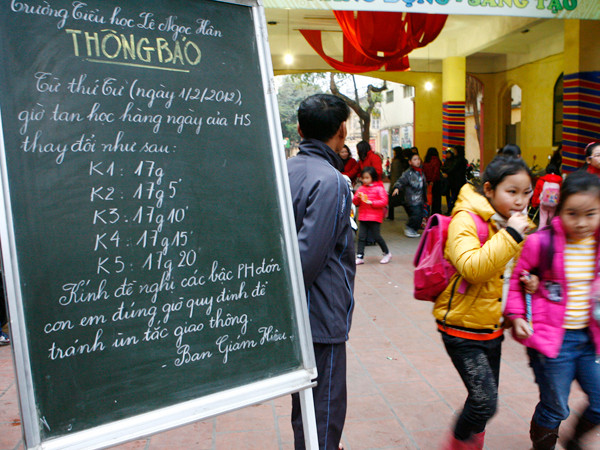 Trường Tiểu học Lê Ngọc Hân
THÔNG BÁO
Từ thứ Tư (ngày 1/2/2012),
giờ tan học hàng ngày của HS
thay đổi như sau:
K1 : 17g
K2 : 17g5'
K3 : 17g10'
K4 : 17g15'
K5 : 17g20
Kính đề nghị các bậc PH đón
con em đúng giờ quy định để
tránh ùn tắc giao thông.
- Ban Giám Hiệu -
ĐỘNG - SÁNG TẠO